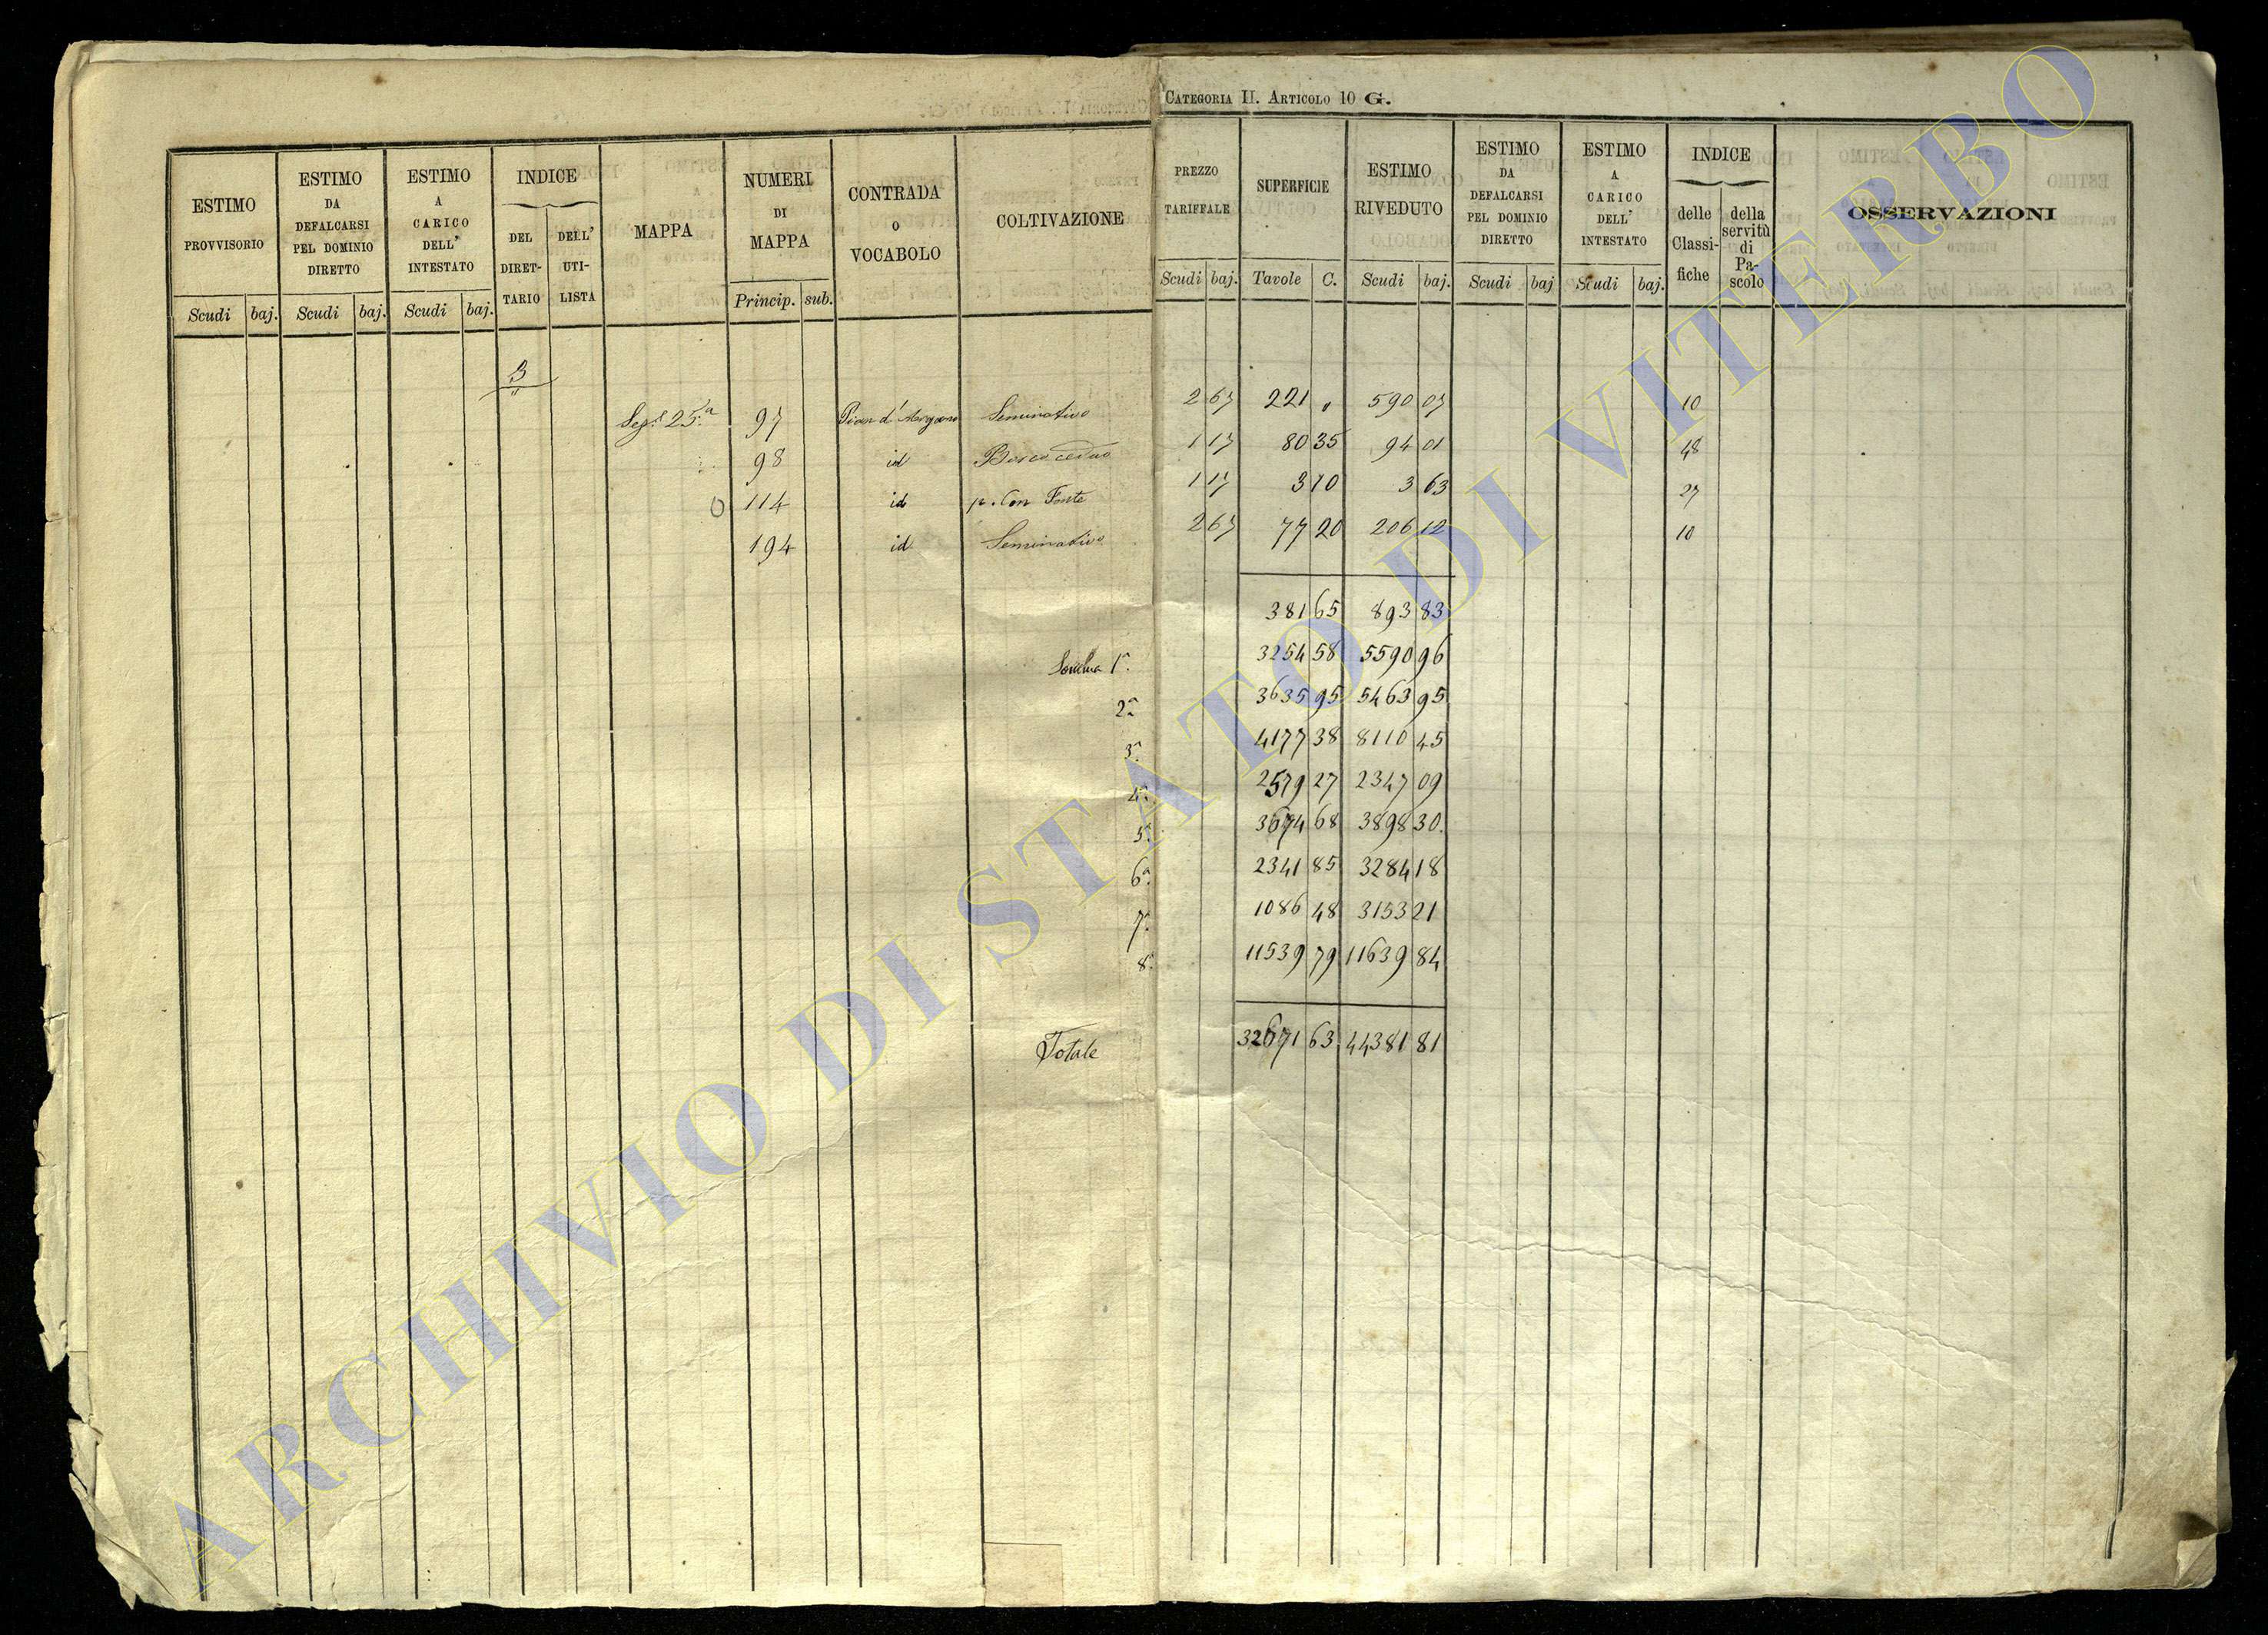 CATEGORIA II. ARTICOLO 10 G.
ESTIMO PROVVISORIO Scudi baj. | ESTIMO DA DEFALCARSI PEL DOMINIO DIRETTO Scudi baj. | ESTIMO A CARICO DELL' INTESTATO Scudi baj. | INDICE DEL DIRET- TARIO | DELL' UTI- LISTA | MAPPA | NUMERI DI MAPPA Princip. sub. | CONTRADA O VOCABOLO | COLTIVAZIONE | PREZZO TARIFFALE Scudi baj. | SUPERFICIE Tavole C. | ESTIMO RIVEDUTO Scudi baj. | ESTIMO DA DEFALCARSI PEL DOMINIO DIRETTO Scudi baj | ESTIMO A CARICO DELL' INTESTATO Scudi baj. | INDICE delle Classi- fiche | della servitù di Pa- scolo | OSSERVAZIONI
3
Sez.e 25.a 97 Pian d' Seminativo 2 67 221 „ 590 07 10
98 id Bosco ceduo 1 17 80 35 94 01 48
0 114 id p. Con Fonte 1 17 3 10 3 63 27
194 id Seminativo 2 67 77 20 206 12 10
381 65 893 83
Somma 1a. 3254 58 5590 96
2a. 3635 95 5463 95
3a. 4177 38 8110 45
4a. 2579 27 2347 09
5a. 3674 68 3898 30.
6a. 2341 85 3284 18
7a. 1086 48 3153 21
8a. 11539 79 11639 84
Totale 32671 63 44381 81
ARCHIVIO DI STATO DI VITERBO